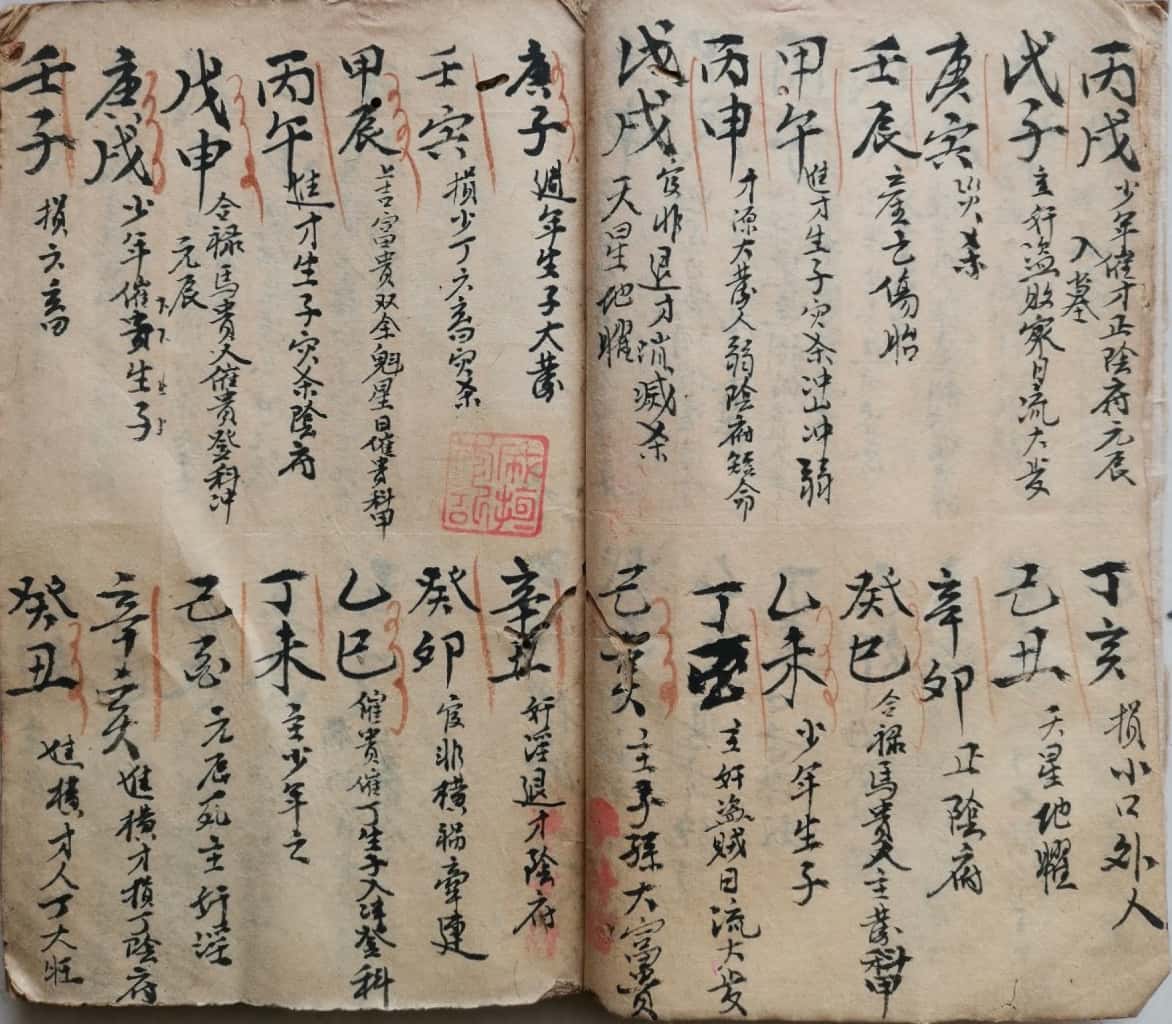 丙戌 少年催才正陰府元辰
入墓
戊子 主奸盗敗家日流大发
庚寅 災杀
壬辰 产亡傷胎
甲午 進才生子灾杀冲山冲弱
丙申 才源大發人弱陰府短命
戊戌 官非退才消滅杀
天星地曜
丁亥 損小口外人
己丑 天星地曜
辛卯 正陰府
癸巳 合禄馬貴人主發科甲
乙未 少年生子
丁酉 主奸盗賊日流大发
己亥 主子孫大富貴
庚子 週年生子大發
壬寅 損少丁六畜灾杀
甲辰 上吉富貴双全魁星日催貴科甲
丙午 進才生子灾杀陰府
戊申 合禄馬貴人催貴登科冲
元辰
庚戌 少年催貴生子
壬子 損六畜
辛丑 奸淫退才陰府
癸卯 官非横禍牽連
乙巳 催貴催丁生子入泮登科
丁未 主少年亡
己酉 元辰死主奸淫
辛亥 進横才損丁陰府
癸丑 進横才人丁大旺